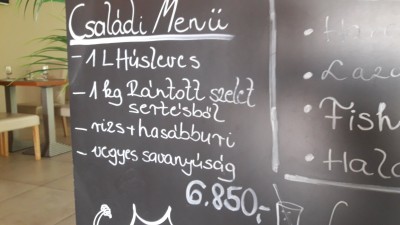 Családi Menü
- 1 L Húsleves
- 1 kg Rántott szelet
sertésből
- rizs + hasábburi
- vegyes savanyúság
6.850,-
Fish